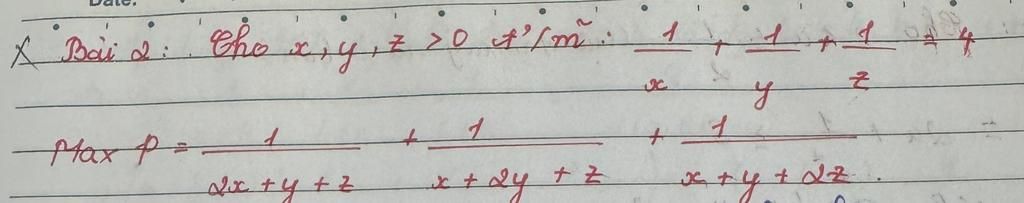 Date:
X Bài 2: Cho x, y, z > 0 t/m: 1/x + 1/y + 1/z = 4
Max P = 1/(2x + y + z) + 1/(x + 2y + z) + 1/(x + y + 2z).